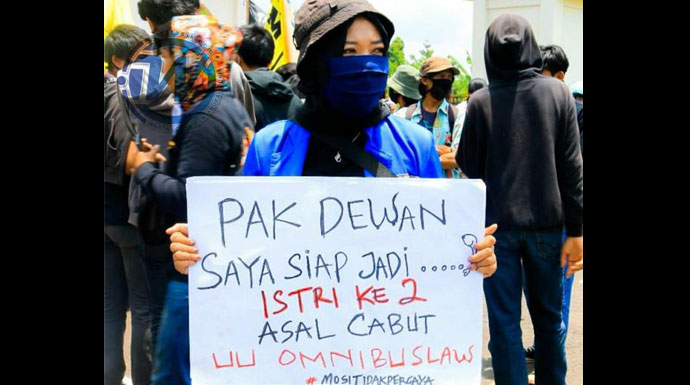 PAK DEWAN
SAYA SIAP JADI .....?
ISTRI KE 2
ASAL CABUT
UU OMNIBUSLAW
#MOSITIDAKPERCAYA